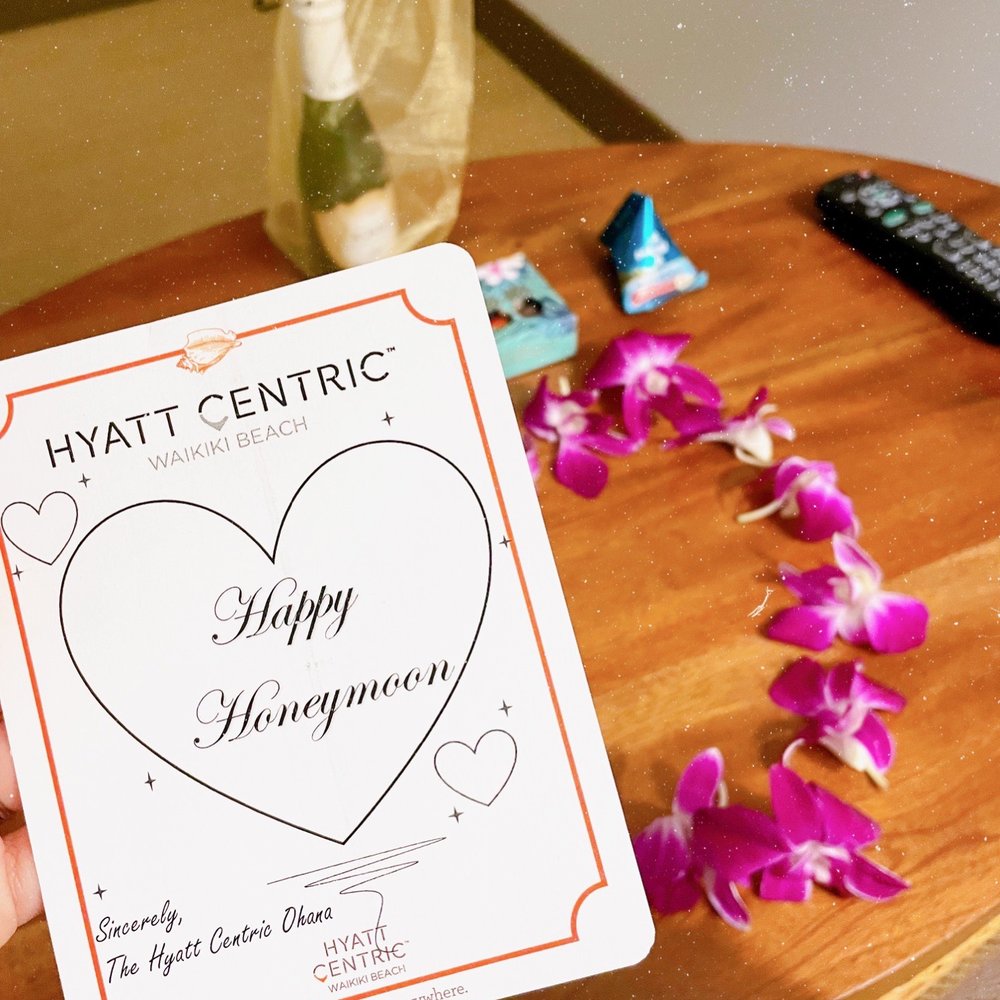 HYATT CENTRIC™
WAIKIKI BEACH
Happy
Honeymoon
Sincerely,
The Hyatt Centric Ohana
HYATT
CENTRIC™
WAIKIKI BEACH